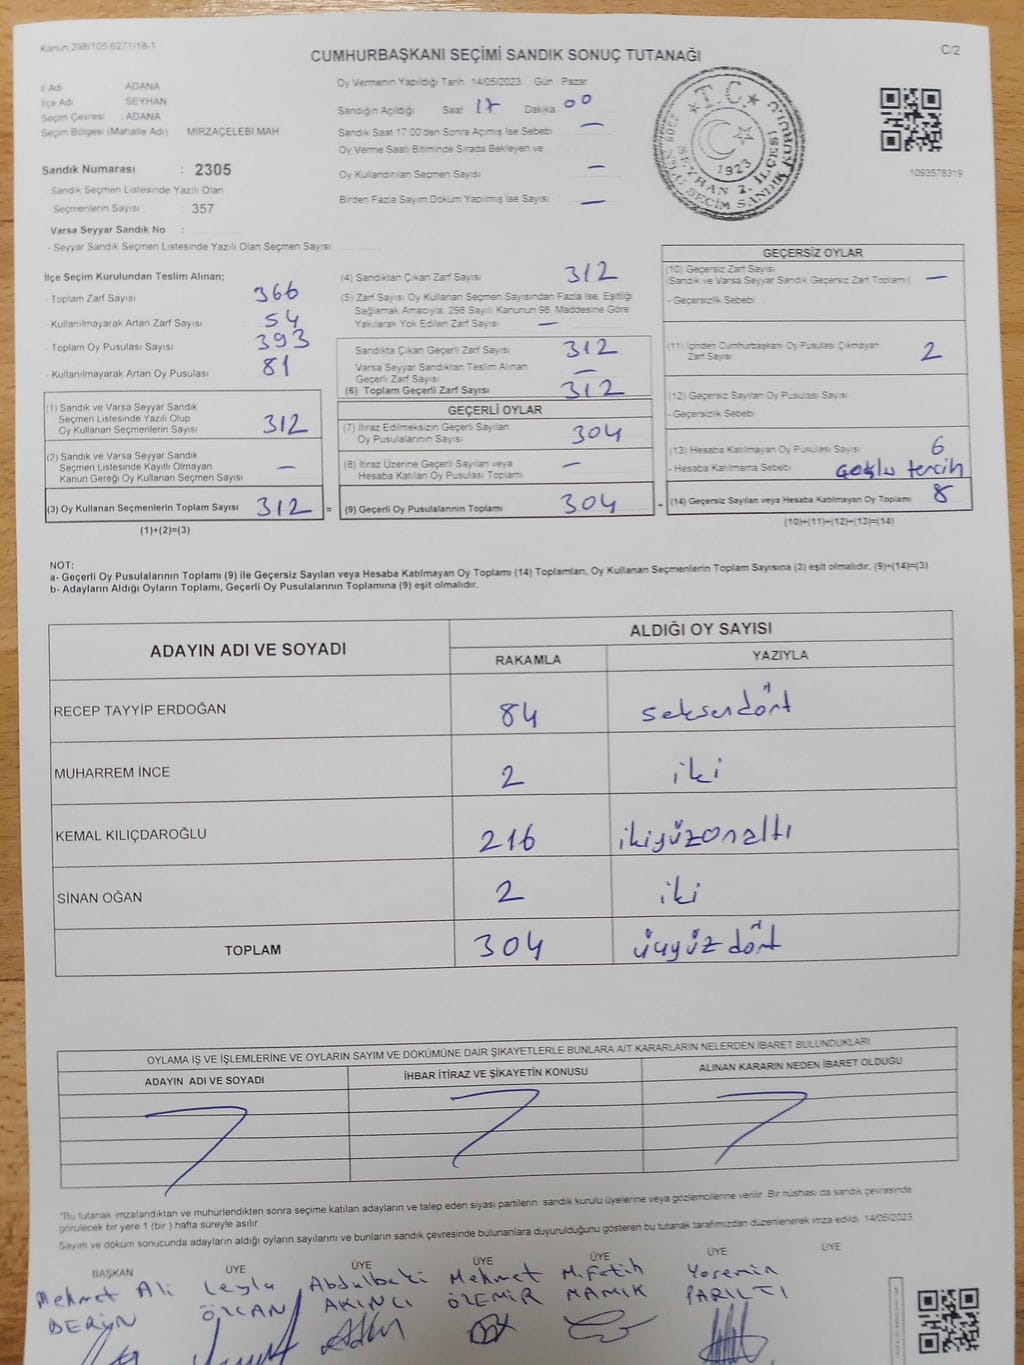 Kanun 298/105,6271/18-1
C/2
CUMHURBAŞKANI SEÇİMİ SANDIK SONUÇ TUTANAĞI
İl Adı ADANA
İlçe Adı SEYHAN
Seçim Çevresi : ADANA
Seçim Bölgesi (Mahalle Adı) MİRZAÇELEBİ MAH
Sandık Numarası : 2305
Sandık Seçmen Listesinde Yazılı Olan
Seçmenlerin Sayısı : 357
Varsa Seyyar Sandık No :
- Seyyar Sandık Seçmen Listesinde Yazılı Olan Seçmen Sayısı
Oy Vermenin Yapıldığı Tarih 14/05/2023 Gün Pazar
Sandığın Açıldığı Saat 17 Dakika 00
Sandık Saat 17:00'den Sonra Açımış İse Sebebi —
Oy Verme Saati Bitiminde Sırada Bekleyen ve
Oy Kullandırılan Seçmen Sayısı —
Birden Fazla Sayım Döküm Yapılmış İse Sayısı —
T.C.
SEYHAN 2. İLÇESİ
1923
1093578319
İlçe Seçim Kurulundan Teslim Alınan;
- Toplam Zarf Sayısı 366
- Kullanılmayarak Artan Zarf Sayısı 54
- Toplam Oy Pusulası Sayısı 393
- Kullanılmayarak Artan Oy Pusulası 81
(1) Sandık ve Varsa Seyyar Sandık
Seçmen Listesinde Yazılı Olup
Oy Kullanan Seçmenlerin Sayısı 312
(2) Sandık ve Varsa Seyyar Sandık
Seçmen Listesinde Kayıtlı Olmayan
Kanun Gereği Oy Kullanan Seçmen Sayısı —
(3) Oy Kullanan Seçmenlerin Toplam Sayısı 312 =
(1)+(2)=(3)
(4) Sandıktan Çıkan Zarf Sayısı 312
(5) Zarf Sayısı Oy Kullanan Seçmen Sayısından Fazla İse, Eşitliği
Sağlamak Amacıyla, 298 Sayılı Kanunun 98. Maddesine Göre
Yakılarak Yok Edilen Zarf Sayısı —
Sandıkta Çıkan Geçerli Zarf Sayısı 312
Varsa Seyyar Sandıktan Teslim Alınan
Geçerli Zarf Sayısı —
(6) Toplam Geçerli Zarf Sayısı 312
GEÇERLİ OYLAR
(7) İtiraz Edilmeksizin Geçerli Sayılan
Oy Pusulalarının Sayısı 304
(8) İtiraz Üzerine Geçerli Sayılan veya
Hesaba Katılan Oy Pusulası Toplamı —
(9) Geçerli Oy Pusulalarının Toplamı 304 +
GEÇERSİZ OYLAR
(10) Geçersiz Zarf Sayısı
(Sandık ve Varsa Seyyar Sandık Geçersiz Zarf Toplamı) —
- Geçersizlik Sebebi
(11) İçinden Cumhurbaşkanı Oy Pusulası Çıkmayan
Zarf Sayısı 2
(12) Geçersiz Sayılan Oy Pusulası Sayısı
- Geçersizlik Sebebi
(13) Hesaba Katılmayan Oy Pusulası Sayısı 6
- Hesaba Katılmama Sebebi tercih
(14) Geçersiz Sayılan veya Hesaba Katılmayan Oy Toplamı 8
(10)+(11)+(12)+(13)=(14)
NOT:
a- Geçerli Oy Pusulalarının Toplamı (9) ile Geçersiz Sayılan veya Hesaba Katılmayan Oy Toplamı (14) Toplamları, Oy Kullanan Seçmenlerin Toplam Sayısına (3) eşit olmalıdır. (9)+(14)=(3)
b- Adayların Aldığı Oyların Toplamı, Geçerli Oy Pusulalarının Toplamına (9) eşit olmalıdır.
ADAYIN ADI VE SOYADI ALDIĞI OY SAYISI
RAKAMLA YAZIYLA
RECEP TAYYİP ERDOĞAN 84 seksendört
MUHARREM İNCE 2 iki
KEMAL KILIÇDAROĞLU 216 ikiyüzonaltı
SİNAN OĞAN 2 iki
TOPLAM 304 üçyüzdört
OYLAMA İŞ VE İŞLEMLERİNE VE OYLARIN SAYIM VE DÖKÜMÜNE DAİR ŞİKAYETLERLE BUNLARA AİT KARARLARIN NELERDEN İBARET BULUNDUKLARI
ADAYIN ADI VE SOYADI İHBAR İTİRAZ VE ŞİKAYETİN KONUSU ALINAN KARARIN NEDEN İBARET OLDUĞU
*Bu tutanak imzalandıktan ve mühürlendikten sonra seçime katılan adayların ve talep eden siyasi partilerin sandık kurulu üyelerine veya gözlemcilerine verilir. Bir nüshası da sandık çevresinde
görülecek bir yere 1 (bir) hafta süreyle asılır.
Sayım ve döküm sonucunda adayların aldığı oyların sayılarını ve bunların sandık çevresinde bulunanlara duyurulduğunu gösteren bu tutanak tarafımızdan düzenlenerek imza edildi. 14/05/2023
BAŞKAN ÜYE ÜYE ÜYE ÜYE ÜYE ÜYE
Mehmet Ali Leyla Abdulbaki Mehmet M.Fatih Yasemin
ÖZCAN AKINCI ÖZEMİR MAMIK PARILTI